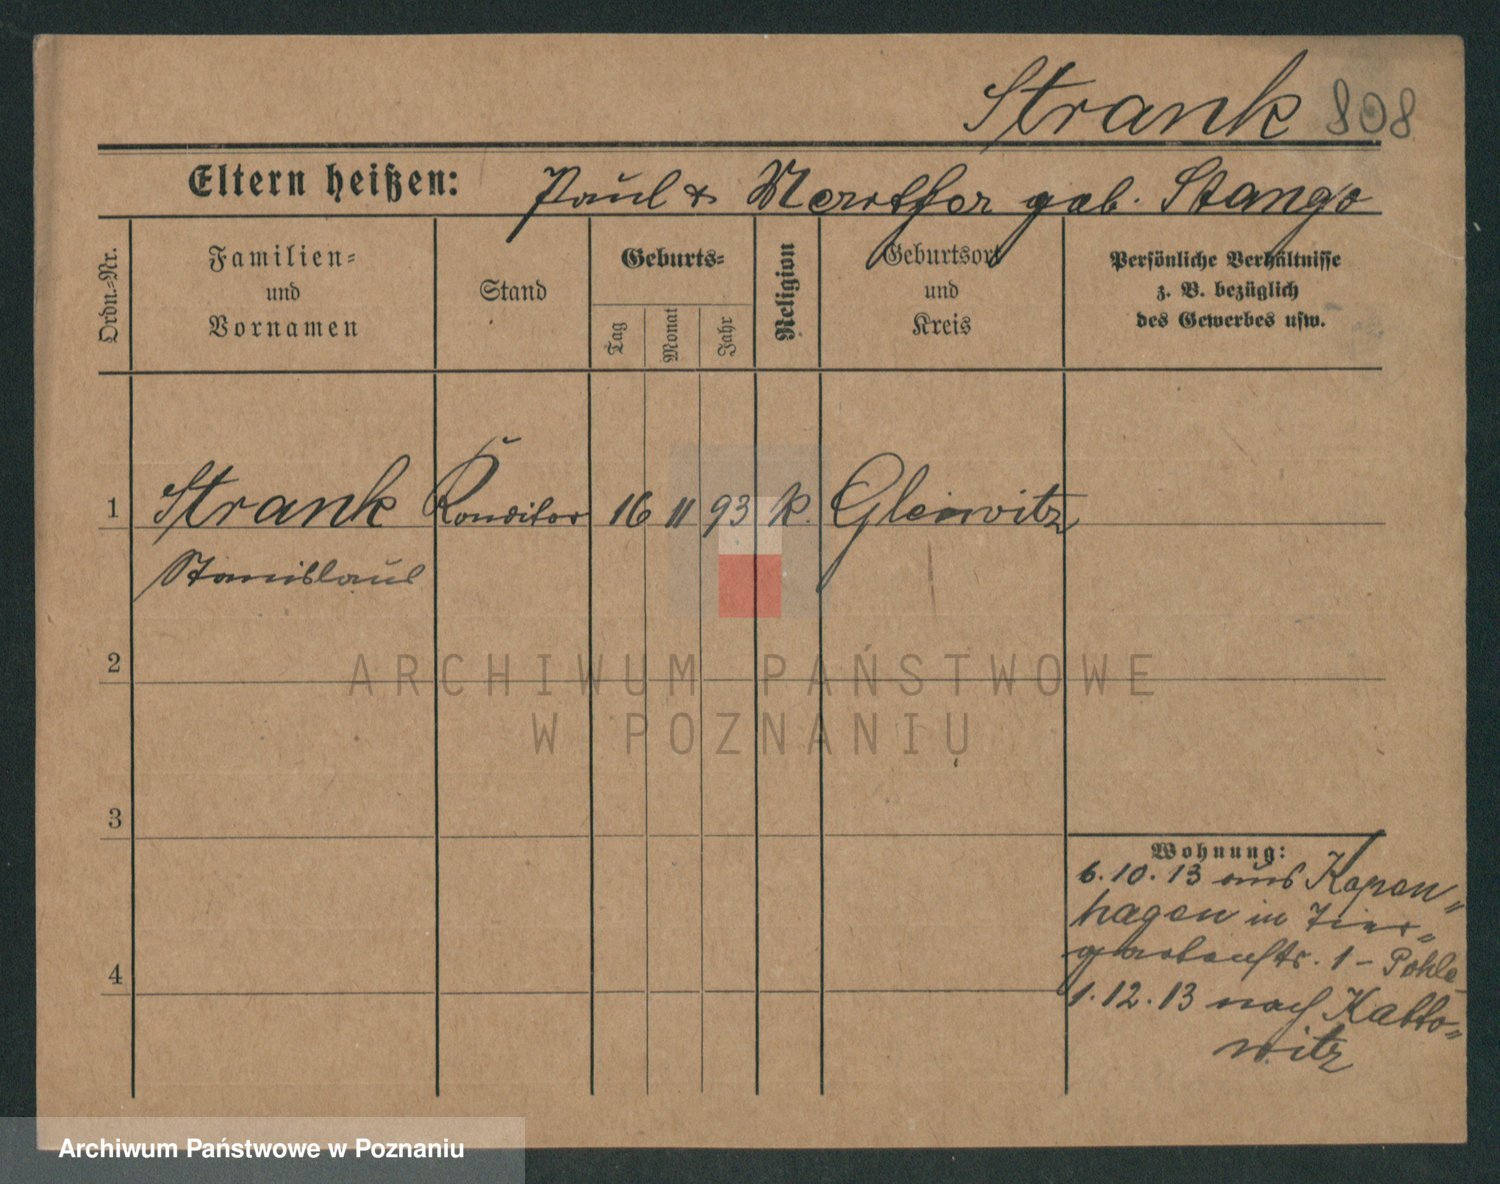 Strank 808
Eltern heißen: Paul & Marthe geb. Stange
Ordn.-Nr.
Familien-
und
Vornamen
Stand
Geburts-
Tag
Monat
Jahr
Religion
Geburtsort
und
Kreis
Persönliche Verhältnisse
z. B. bezüglich
des Gewerbes usw.
1 Strank Konditor 16 11 93 k. Gleiwitz
Stanislaus
2
ARCHIWUM PAŃSTWOWE
W POZNANIU
3
Wohnung:
6.10.13 aus Kopen"
hagen in Tier"
gartenstr. 1 -
4
1.12.13 nach Katto"
witz
Archiwum Państwowe w Poznaniu